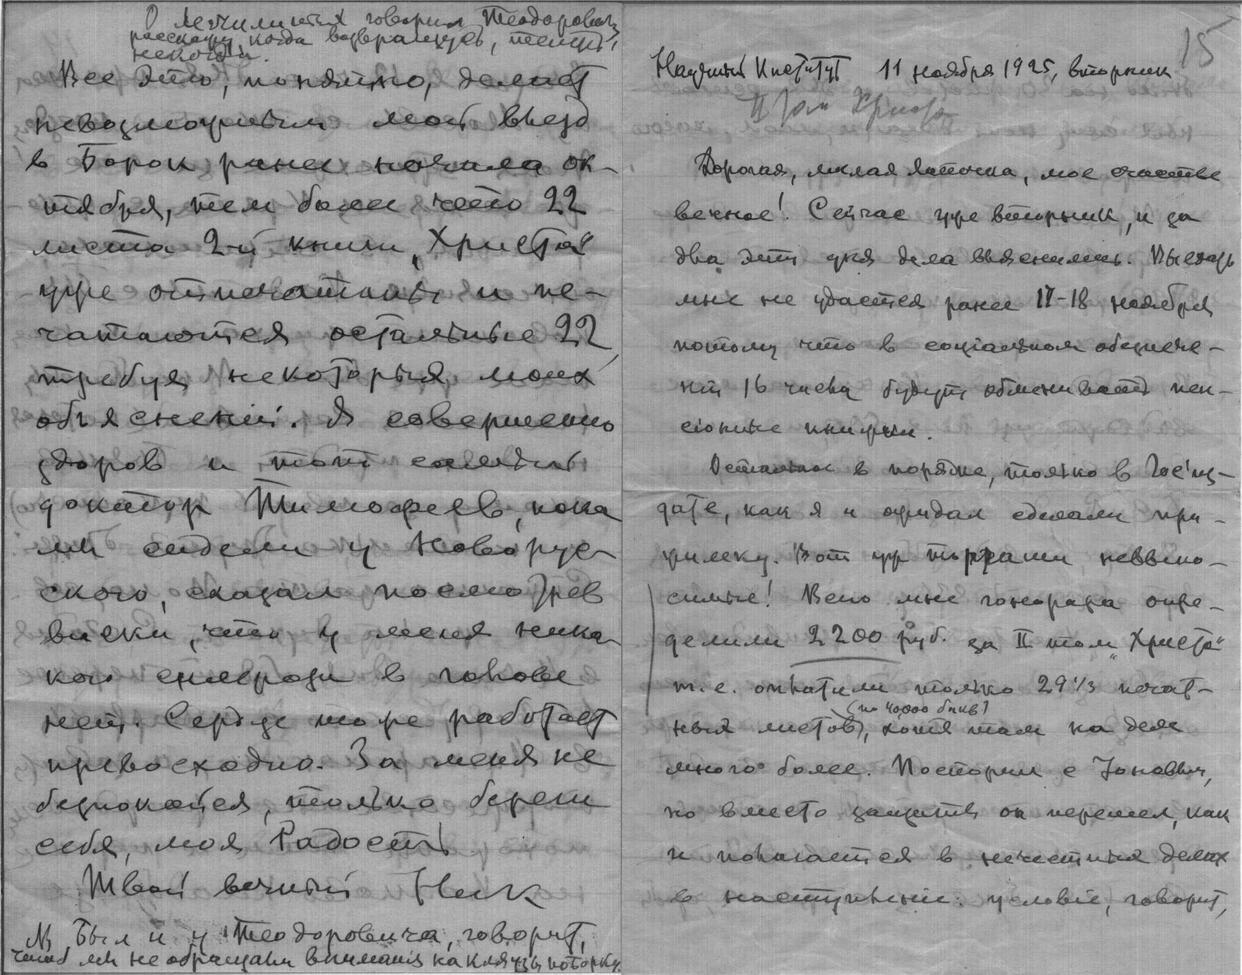 говорил Теодорович,
расскажу, когда возвращусь, теперь
некогда.
Все это, понятно, делает
невозможным мой въезд
в Борок ранее начала ок-
тября, тем более что 22
листа 2-й книги „Христа“
уже отпечатаны и пе-
чатаются остальные 22,
требуя некоторых моих
объяснений. Я совершенно
здоров и тот самый
доктор Тимофеев, пока
мы сидели у Новорус-
ского, сказал после
что у меня ника-
кого склероза в голове
нет. Сердце тоже работает
превосходно. За меня не
безпокойся, только береги
себя, моя Радость!
Твой вечный Ник
Был и у Теодоровича, говорит,
чтоб мы не обращали внимания на кляузы
15
Научный Институт 11 ноября 1925, вторник
II том Христа
Дорогая, милая лапочка, мое счастье
вечное! Сейчас уже вторник, и за
два эти дня дела выяснились. Выехать
мне не удастся ранее 17-18 ноября
потому что в социальном обеспече-
нии 16 числа будут обменивать пен-
сионные книжки.
Остальное в порядке, только в Госиз-
дате, как я и ожидал сделали при-
жимку. Вот уж торгаши невыно-
симые! Всего мне гонорара опре-
делили 2200 руб. за II том „Христа“
т.е. оплатили только 29 1/3 печат-
(по 40000 букв)
ных листов, хотя там на деле
много более. Поспорил с Ионовым,
но вместо защиты он перешел, как
и полагается в нечестных делах
в наступление: условие, говорит,